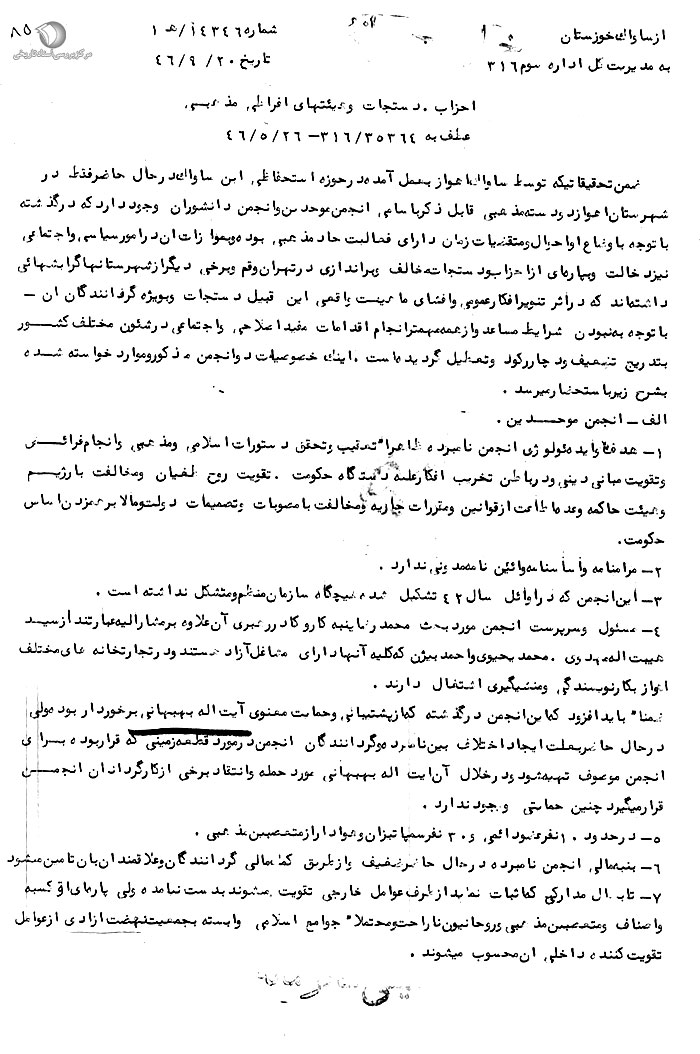 ۸۵
مرکز بررسی اسناد تاریخی
از ساواک خوزستان
شماره ۱۴۳۴۶/ه‍ ۱
به مدیریت کل اداره سوم ۳۱۶
تاریخ ۴۶/۹/۲۰
احزاب . دستجات وهیئتهای افراطی مذهبی
عطف به ۳۱۶/۳۵۳۶۴ – ۴۶/۵/۲۶
ضمن تحقیقاتیکه توسط ساواک اهواز بعمل آمده در حوزه استحفاظی این ساواک در حال حاضر فقط در
شهرستان اهواز دو دسته مذهبی قابل ذکر باسامی انجمن موحدین وانجمن دانشوران وجود دارد که درگذشته
با توجه با وضاع واحوال ومقتضیات زمان دارای فعالیت حاد مذهبی بوده وبموازات آن در امور سیاسی واجتماعی
نیز دخالت وبپاره‌ای از احزاب ودستجات مخالف وبراندازی در تهران وقم وبرخی دیگر از شهرستانها گرایشهائی
داشته‌اند که در اثر تنویر افکار عمومی وافشای ماهیت واقعی این قبیل دستجات وبویژه گردانندگان آن –
با توجه به نبودن شرایط مساعد واز همه مهمتر انجام اقدامات مفید اصلاحی واجتماعی در شئون مختلف کشور
بتدریج تضعیف ودچار رکود وتعطیل گردیده است . اینک خصوصیات دو انجمن مذکور وموارد خواسته شده
بشرح زیر باستحضار میرسد .
الف – انجمن موحدین .
۱– هدف وایدئولوژی انجمن نامبرده ظاهرا" تعقیب وتحقق دستورات اسلامی ومذهبی وانجام فرائض
وتقویت مبانی دینی ودر باطن تخریب افکار علیه دستگاه حکومت . تقویت روح طغیان ومخالفت با رژیم
وهیئت حاکمه وعدم اطاعت از قوانین ومقررات جاریه ومخالفت با مصوبات وتصمیمات دولت ومالا برهم زدن اساس
حکومت.
۲– مرامنامه واساسنامه وائین نامه مدونی ندارد .
۳– این انجمن که در اوائل سال ۴۲ تشکیل شده هیچگاه سازمان منظم ومتشکلی نداشته است .
۴– مسئول وسرپرست انجمن مورد بحث محمد رضا پنبه کار وکادر رهبری آن علاوه بر مشارالیه عبارتند از سید
هیبت اله مهدوی . محمد یحیوی واحمد بیژن که کلیه آنها دارای مشاغل آزاد هستند ودر تجارتخانه های مختلف
اهواز بکار نویسندگی ومنشیگیری اشتغال دارند .
ضمنا" باید افزود که این انجمن در گذشته که از پشتیبانی وحمایت معنوی آیت اله بهبهانی برخوردار بود ولی
در حال حاضر بعلت ایجاد اختلاف بین نامبرده وگردانندگان انجمن در مورد قطعه زمینی که قرار بوده برای
انجمن موصوف تهیه شود ودر خلال آن آیت اله بهبهانی مورد حمله وانتقاد برخی از کارگردانان انجمن
قرار میگیرد چنین حمایتی وجود ندارد .
۵– در حدود ۱۰ نفر عضو دائمی و ۳۰ نفر سمپاتیزان وهوادار از متعصبین مذهبی .
۶– بنیه مالی انجمن نامبرده در حال حاضر ضعیف واز طریق کمک مالی گردانندگان وعلاقمندان بان تامین میشود
۷– تابحال مدارکی که اثبات نماید از طرف عوامل خارجی تقویت میشوند بدست نیامده ولی پاره‌ای از کسبه
واصناف ومتعصبین مذهبی وروحانیون ناراحت ومحتملا" جوامع اسلامی وابسته بجمعیت نهضت ازادی از عوامل
تقویت کننده داخلی ان محسوب میشوند .